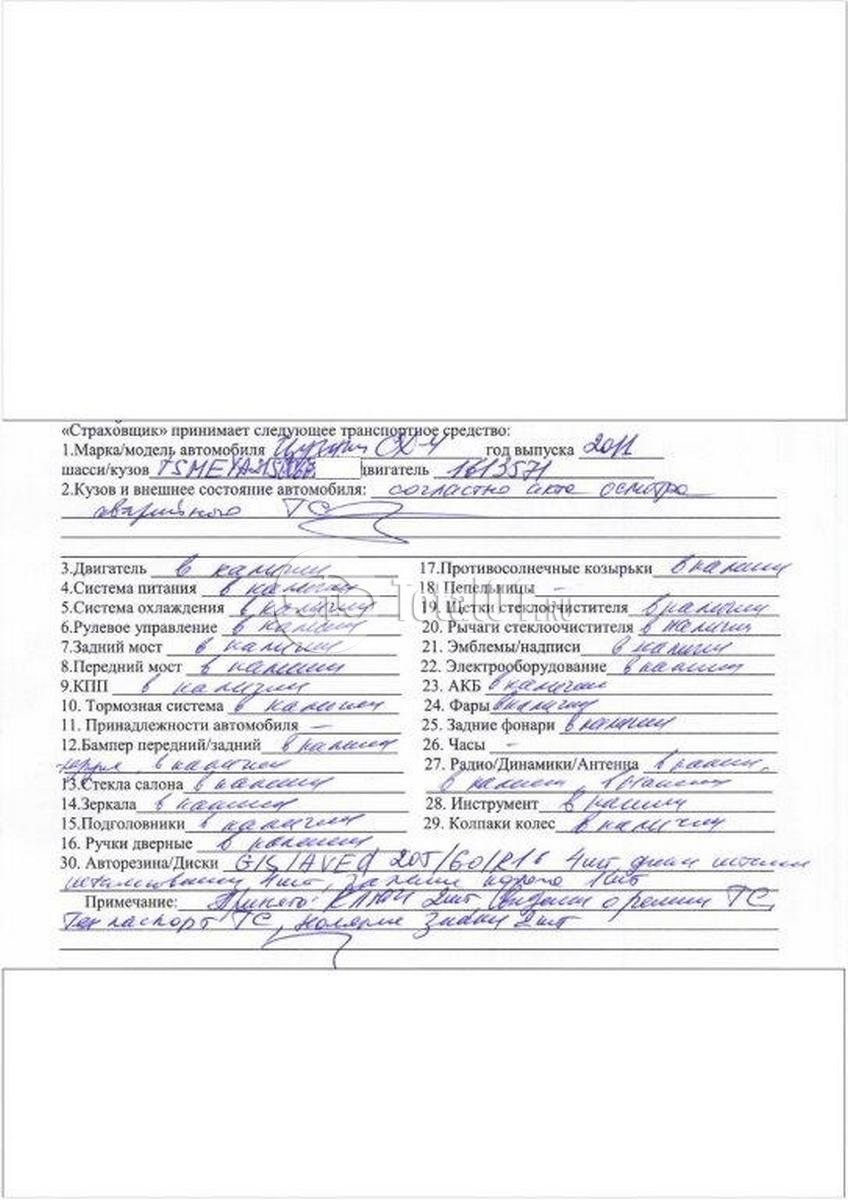 «Страховщик» принимает следующее транспортное средство:
1.Марка/модель автомобиля год выпуска 2011
шасси/кузов двигатель 1613571
2.Кузов и внешнее состояние автомобиля: согласно акта осмотра
аварийного ТС
3.Двигатель в наличии
4.Система питания в наличии
5.Система охлаждения в наличии
6.Рулевое управление в наличии
7.Задний мост в наличии
8.Передний мост в наличии
9.КПП в наличии
10. Тормозная система в наличии
11. Принадлежности автомобиля –
12.Бампер передний/задний в наличии
в наличии
13.Стекла салона в наличии
14.Зеркала в наличии
15.Подголовники в наличии
16. Ручки дверные в наличии
17.Противосолнечные козырьки в наличии
18 Пепельницы –
19. Щетки стеклоочистителя в наличии
20. Рычаги стеклоочистителя в наличии
21. Эмблемы/надписи в наличии
22. Электрооборудование в наличии
23. АКБ в наличии
24. Фары в наличии
25. Задние фонари в наличии
26. Часы –
27. Радио/Динамики/Антенна в наличии,
в наличии в наличии
28. Инструмент в наличии
29. Колпаки колес в наличии
30. Авторезина/Диски GISLAVED 205/60/R16 4шт, диски
4шт, 1шт
Примечание: Принято: ключи 2шт ТС,
Тех паспорт ТС, номерные знаки 2шт
Total01.ru